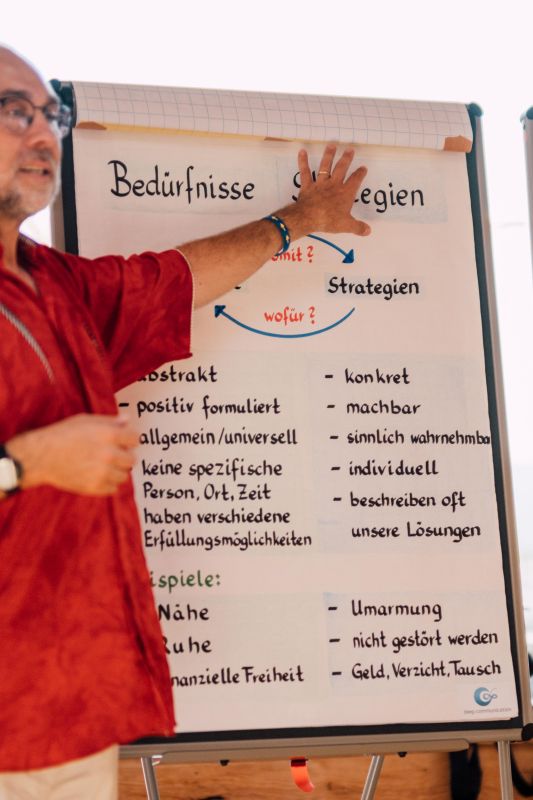 Bedürfnisse Strategien
womit?
Strategien
wofür?
- abstrakt
- positiv formuliert
allgemein/universell
keine spezifische
Person, Ort, Zeit
haben verschiedene
Erfüllungsmöglichkeiten
- konkret
- machbar
- sinnlich wahrnehmba
- individuell
- beschreiben oft
unsere Lösungen
ispiele:
Nähe
Ruhe
nanzielle Freiheit
- Umarmung
- nicht gestört werden
- Geld, Verzicht, Tausch